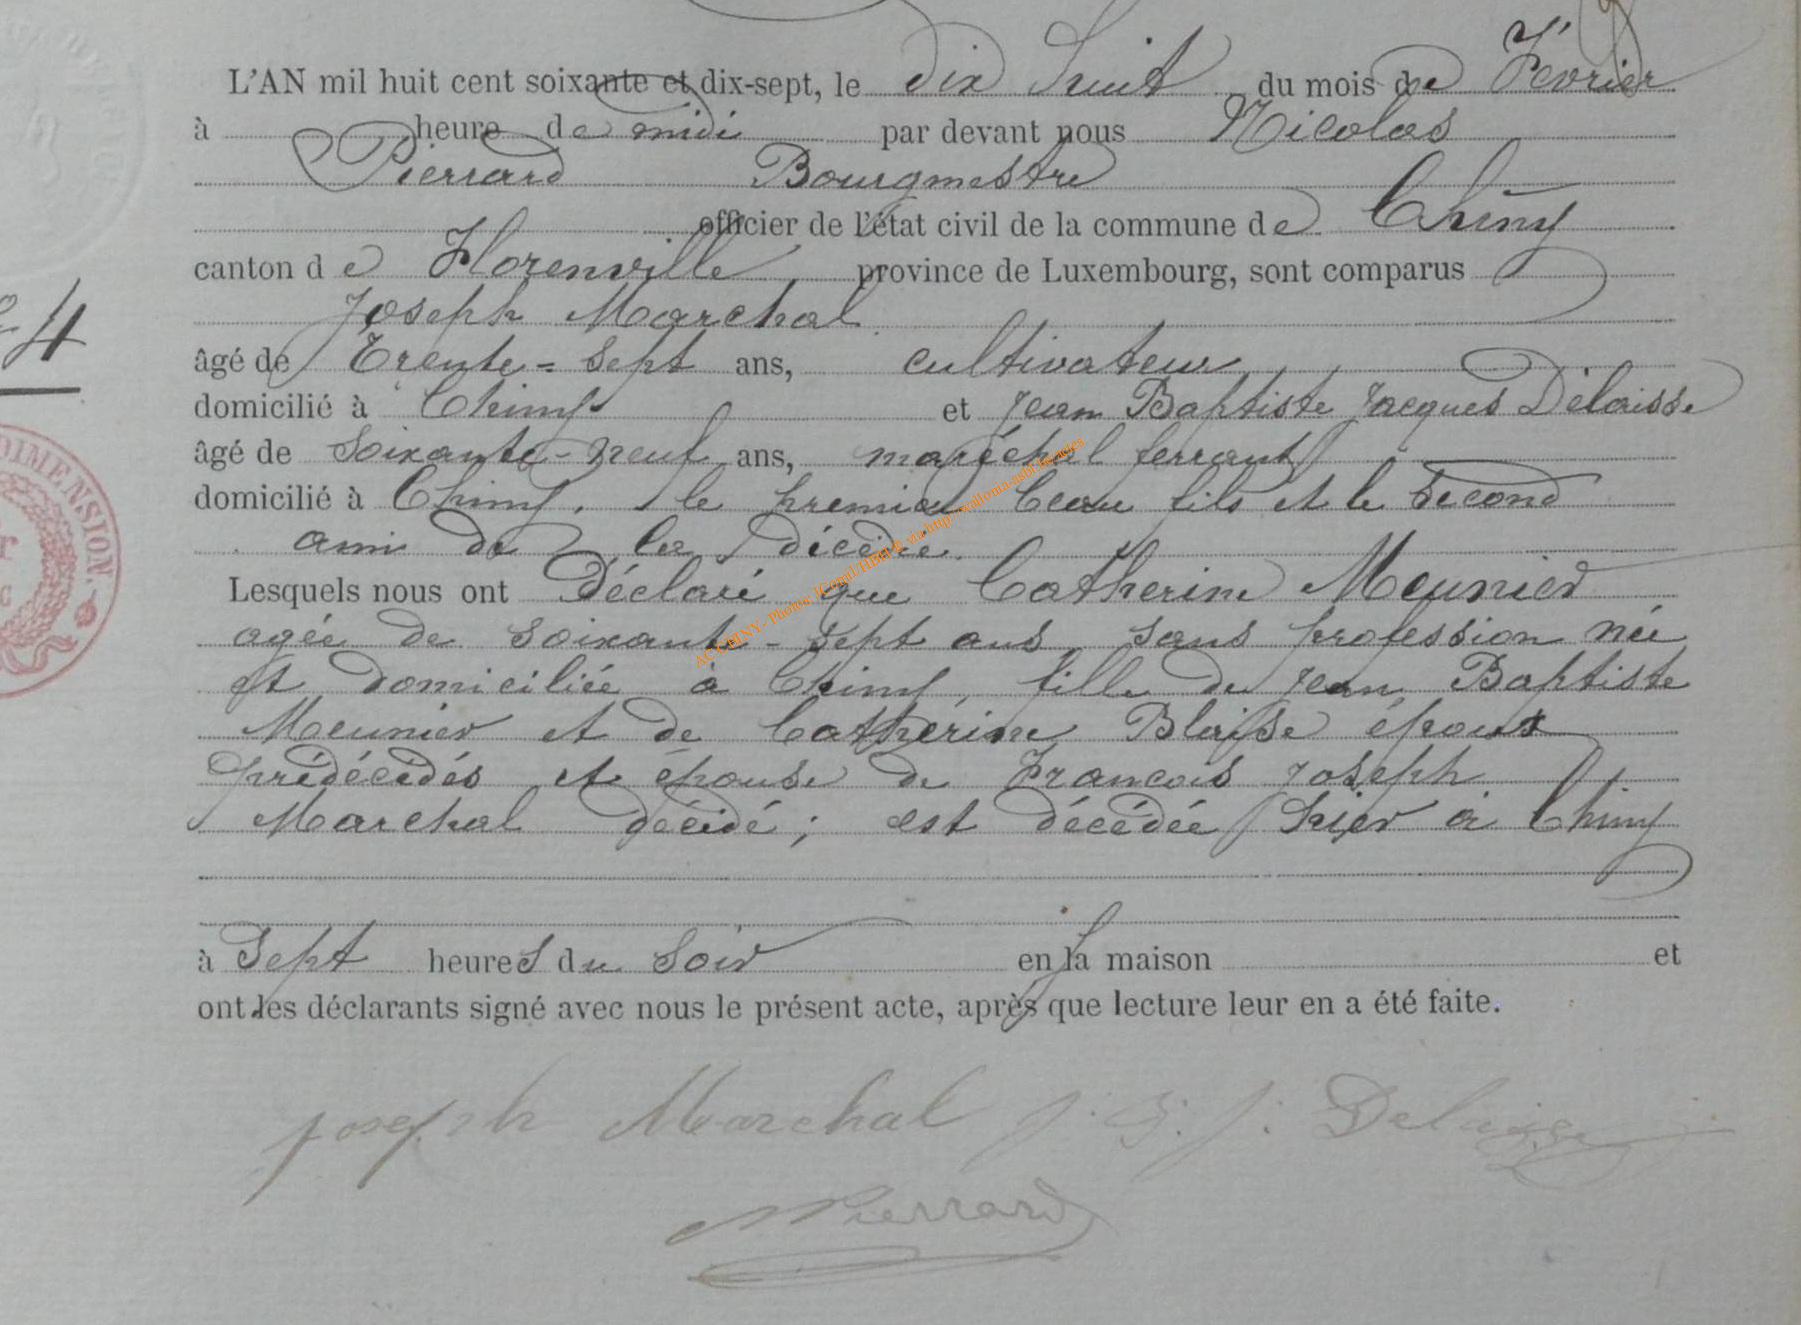 L'AN mil huit cent soixante et dix-sept, le dix huit du mois de Février
à heure de midi par devant nous Nicolas
Pierrard Bourgmestre
officier de l'état civil de la commune de Chiny
canton de Florenville province de Luxembourg, sont comparus
Joseph Marchal
4
âgé de Trente=sept ans, cultivateur
domicilié à Chiny et Jean Baptiste Jacques Delaisse
âgé de Soixante-neuf ans, maréchal ferrant
domicilié à Chiny. le premier beau fils et le second
ami de la décédée.
Lesquels nous ont Déclaré que Catherine Meunier
agée de soixante-sept ans sans profession née
et domiciliée à Chiny, fille de Jean Baptiste
Meunier et de Cathérine Blaise époux
prédécédés et épouse de Francois Joseph
Marchal décédé; est décédée hier à Chiny
à Sept heures du soir en la maison et
ont les déclarants signé avec nous le présent acte, après que lecture leur en a été faite.
Joseph Marchal J. B. J. Delaisse
NPierrard
DIMENSION.
AC CHINY - Photos